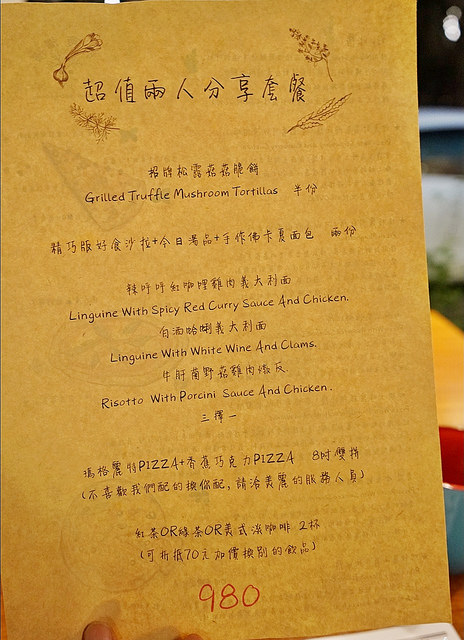 超值兩人分享套餐
招牌松露菇菇脆餅
Grilled Truffle Mushroom Tortillas 半份
精巧版好食沙拉+今日湯品+手作佛卡夏面包 兩份
辣呼呼紅咖哩雞肉義大利面
Linguine With Spicy Red Curry Sauce And Chicken.
白酒蛤蜊義大利面
Linguine With White Wine And Clams.
牛肝菌野菇雞肉燉飯
Risotto With Porcini Sauce And Chicken.
三擇一
瑪格麗特PIZZA+香蕉巧克力PIZZA 8吋雙拼
(不喜歡我們配的換你配,請洽美麗的服務人員)
紅茶OR綠茶OR美式淡咖啡 2杯
(可折抵70元加價換別的飲品)
980